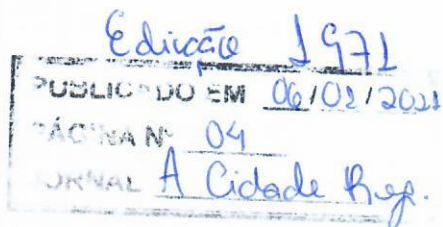 Edição 1971
PUBLICADO EM 06/02/2021
PÁGINA Nº 04
JORNAL A Cidade Reg.